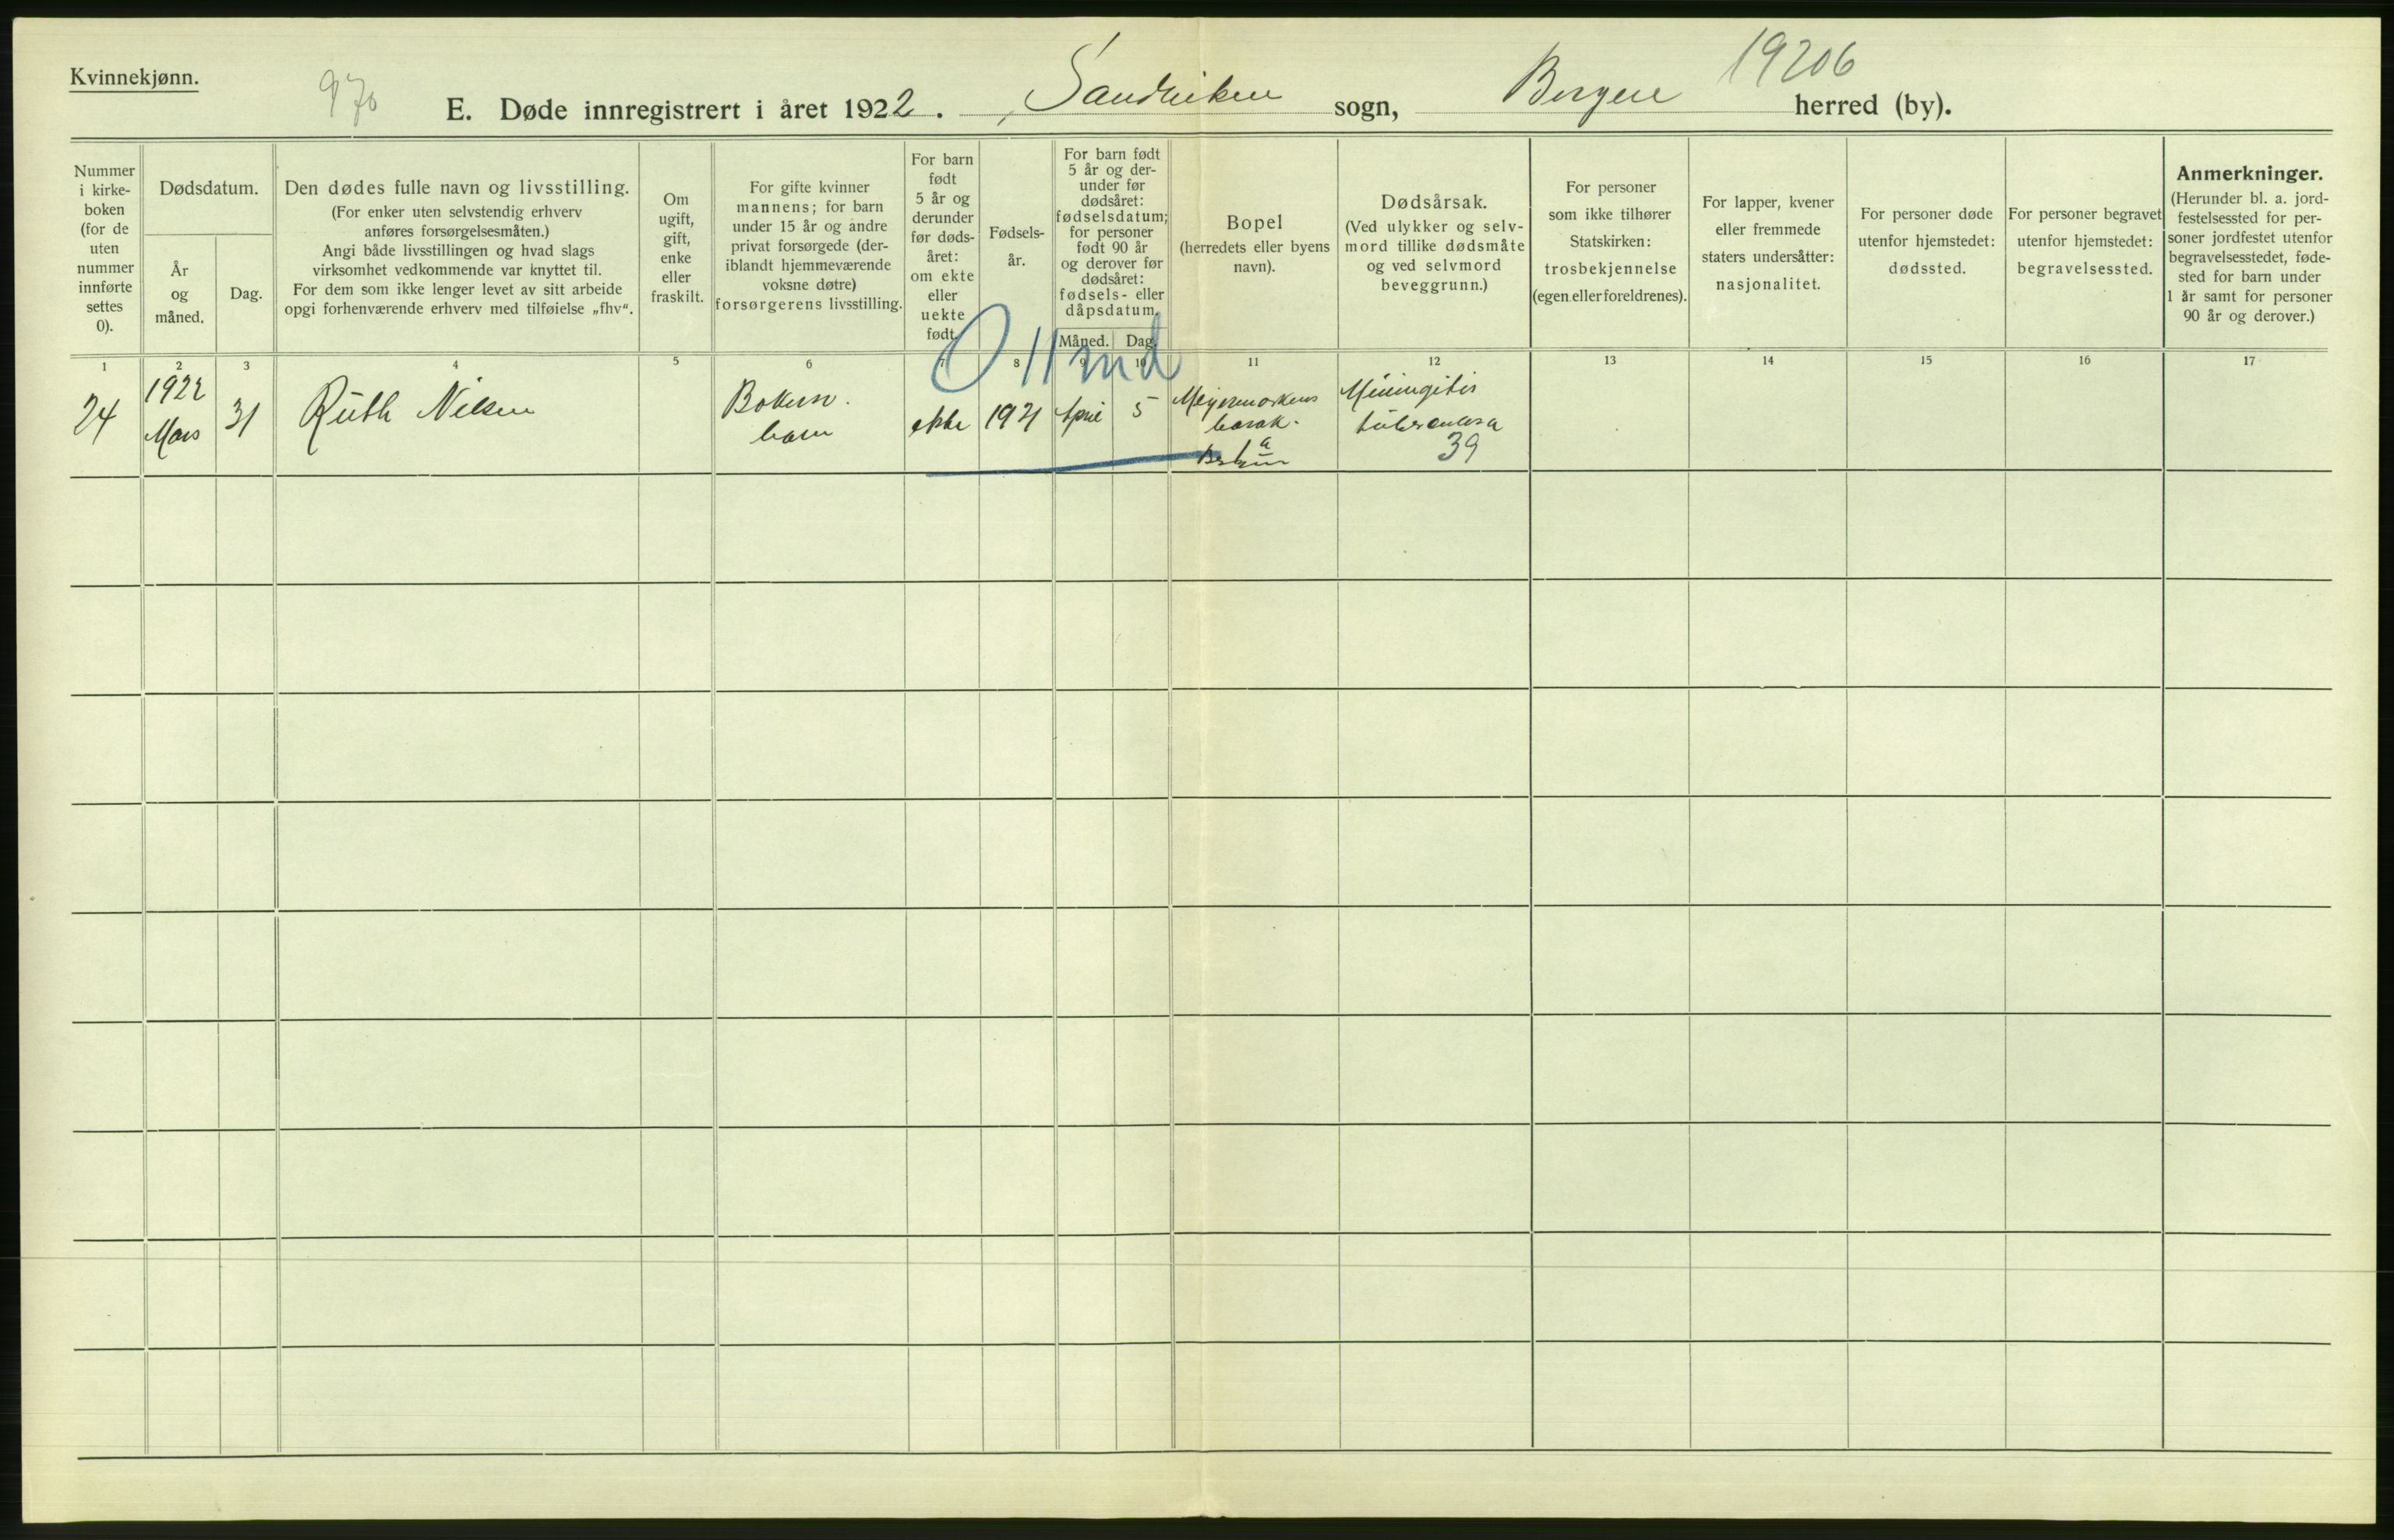 Kvinnekjønn.
970
19206
E. Døde innregistrert i året 1922. Sandviken sogn, Bergen herred (by).
Nummer
i kirke-
boken
(for de
uten
nummer
innførte
settes
0).
Dødsdatum.
År
og
måned.
Dag.
Den dødes fulle navn og livsstilling.
(For enker uten selvstendig erhverv
anføres forsørgelsesmåten.)
Angi både livsstillingen og hvad slags
virksomhet vedkommende var knyttet til.
For dem som ikke lenger levet av sitt arbeide
opgi forhenværende erhverv med tilføielse „fhv“.
Om
ugift,
gift,
enke
eller
fraskilt.
For gifte kvinner
mannens; for barn
under 15 år og andre
privat forsørgede (der-
iblandt hjemmeværende
voksne døtre)
forsørgerens livsstilling.
For barn
født
5 år og
derunder
før døds-
året:
om ekte
eller
uekte
født.
Fødsels-
år.
For barn født
5 år og der-
under før
dødsåret:
fødselsdatum;
for personer
født 90 år
og derover før
dødsåret:
fødsels- eller
dåpsdatum.
Måned. Dag.
Bopel
(herredets eller byens
navn).
Dødsårsak.
(Ved ulykker og selv-
mord tillike dødsmåte
og ved selvmord
beveggrunn.)
For personer
som ikke tilhører
Statskirken:
trosbekjennelse
(egen eller foreldrenes).
For lapper, kvener
eller fremmede
staters undersåtter:
nasjonalitet.
For personer døde
utenfor hjemstedet:
dødssted.
For personer begravet
utenfor hjemstedet:
begravelsessted.
Anmerkninger.
(Herunder bl. a. jord-
festelsessted for per-
soner jordfestet utenfor
begravelsesstedet, føde-
sted for barn under
1 år samt for personer
90 år og derover.)
1 2 3 4 5 6 7 8 9 10 11 12 13 14 15 16 17
0 11 md
24
1922
Mars
31
Ruth Nilsen
barn
ekte
1921
April
5
barak.
Meningitis
tuberculosa
39